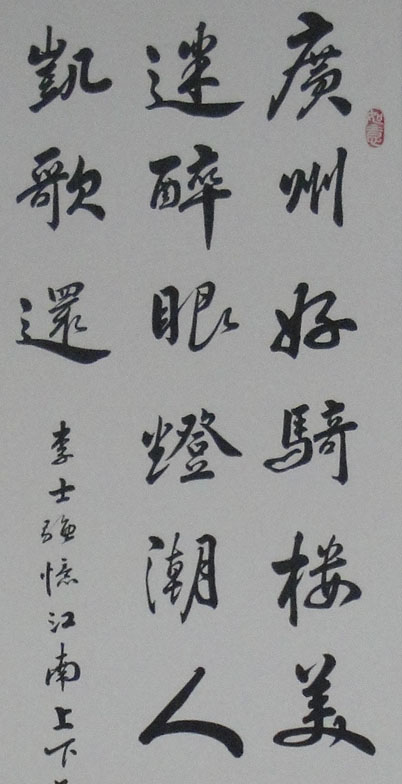 廣州好騎楼美
迷醉眼燈潮人
凱歌還
李士强憶江南上下